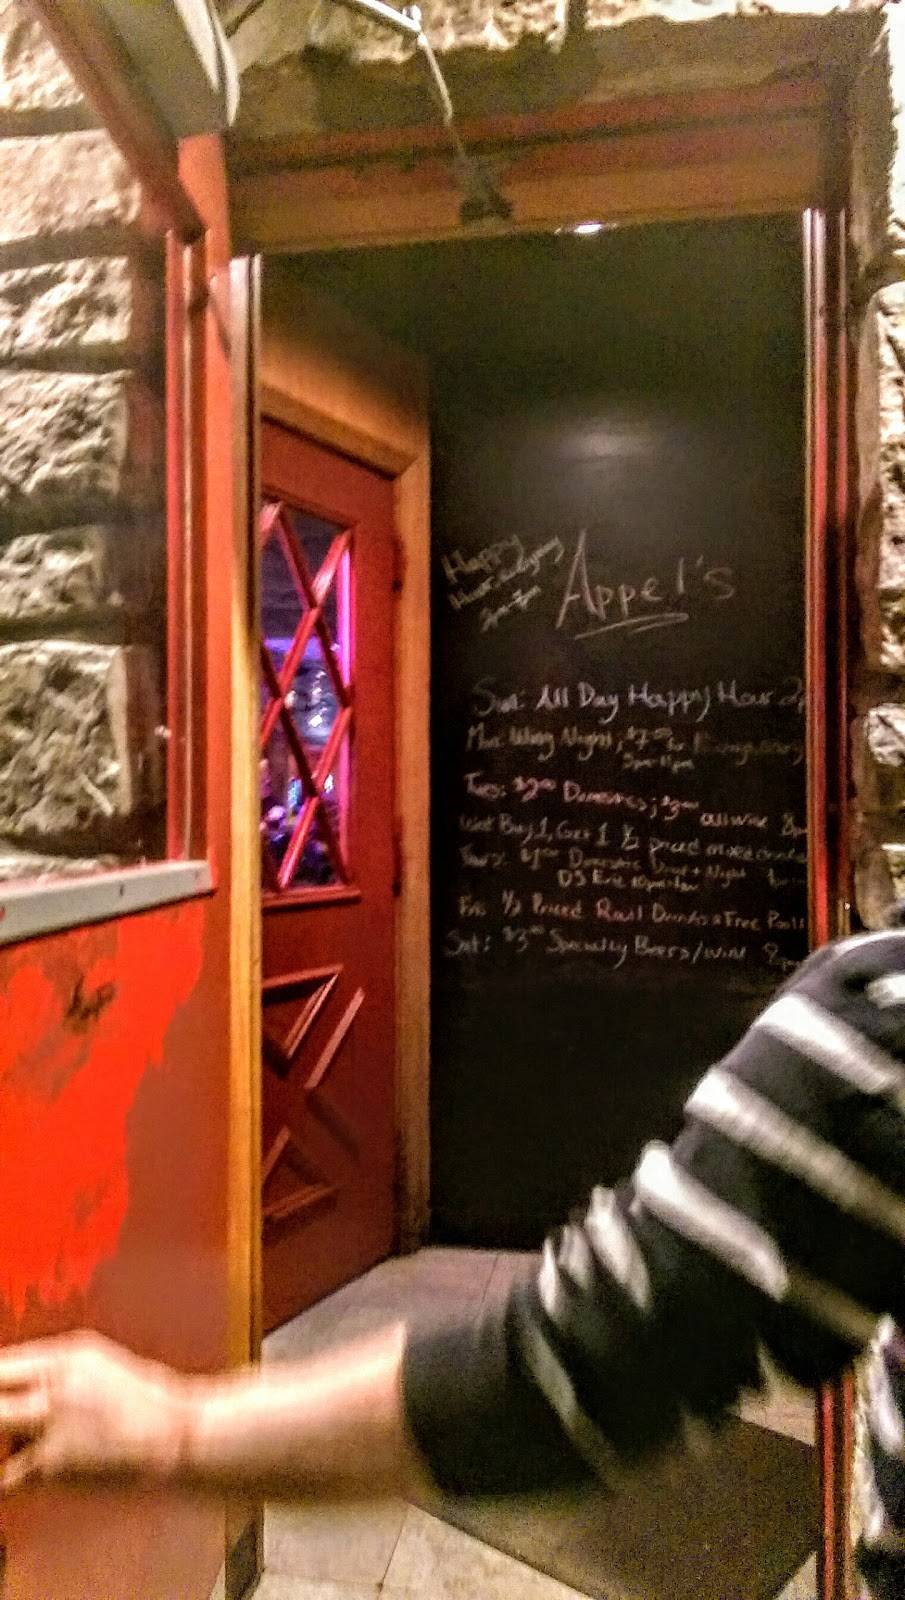 Happy
Appel's
Sun: All Day Happy Hour 2p
Mon: Wing Night, $7.00 for
5pm-11pm
Tues: $2.00 Domestics; $3.00 all wine 8pm
Wed: Buy 1, Get 1 1/2 priced mixed drinks
Thurs: $1.00 Domestic Draft Night
DJ Eric 10pm-1am
Fri: 1/2 Priced Rail Drinks & Free Pool
Sat: $3.00 Specialty Beers/wine 8pm